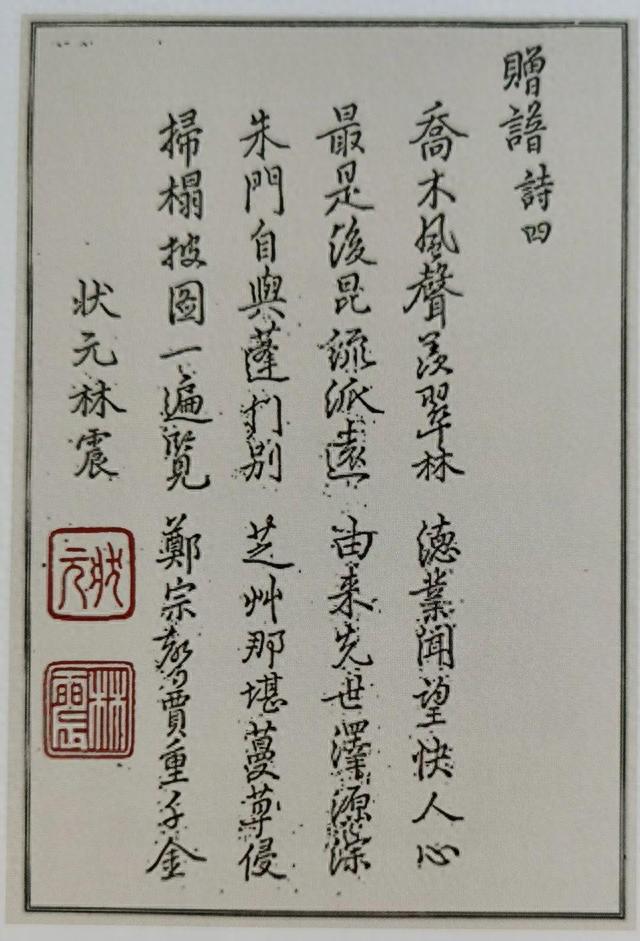 贈譜詩四
喬木風聲羨翠林 德業聞望快人心
最是後昆派遠 由来先世澤源深
朱門自與蓬门别 芝艸那堪蔓草侵
掃榻披图一遍覽 鄭宗賈重千金
状元林震
状元
林震